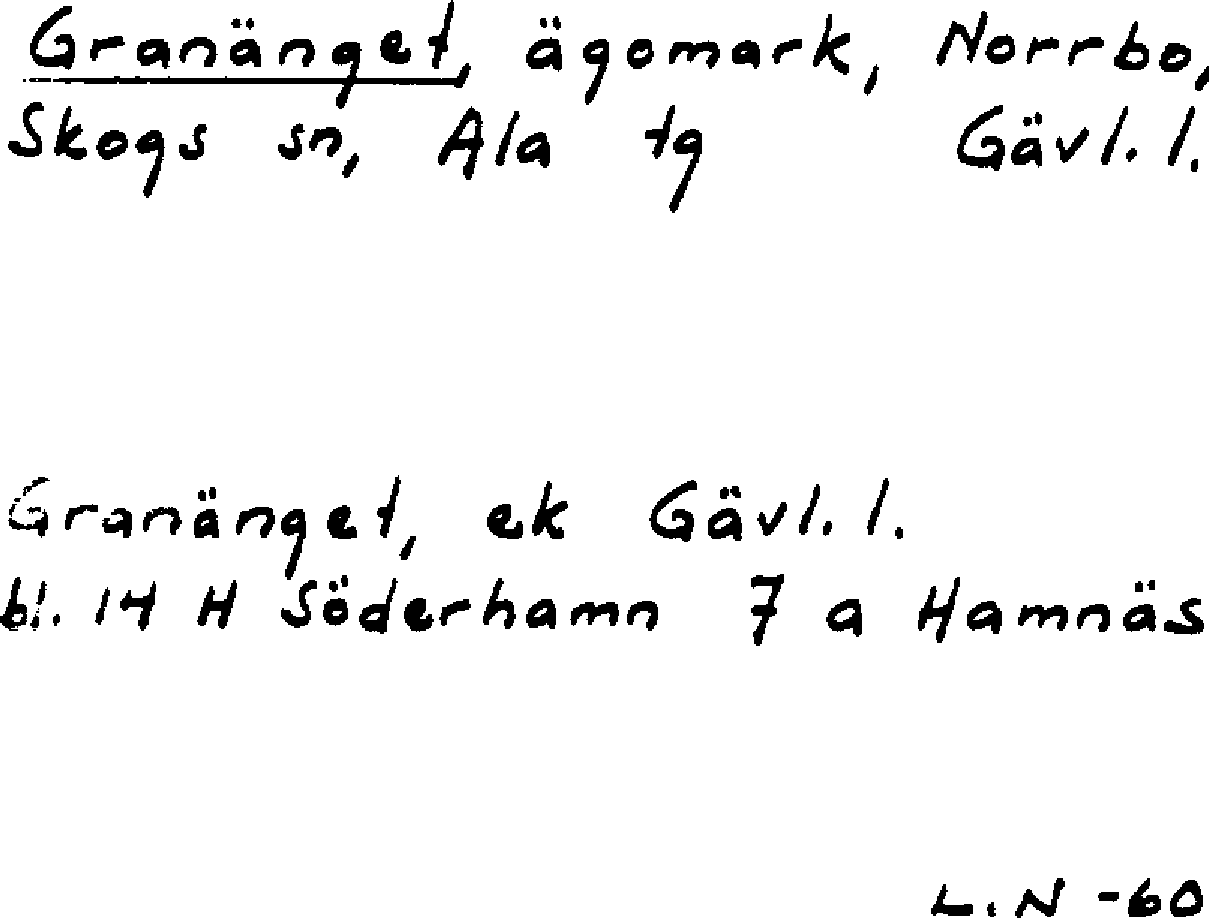 Granänget, ägomark, Norrbo,
Skogs sn, Ala tg Gävl. l.
Granänget, ek Gävl. l.
bl. 14 H Söderhamn 7 a Hamnäs
L.N -60